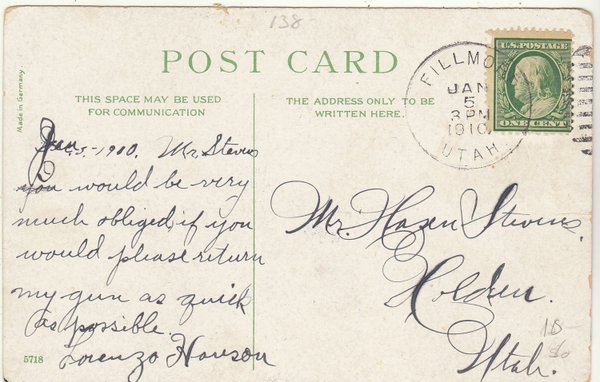 138-
POST CARD
Made in Germany.
THIS SPACE MAY BE USED
FOR COMMUNICATION
THE ADDRESS ONLY TO BE
WRITTEN HERE.
FILLMO
JAN
5
3PM
1910
UTAH
U.S. POSTAGE
ONE CENT
Jan 5-1910. Mr Stevens
you would be very
much obliged, if you
would please return
my gun as quick
as possible.
Lorenzo Hanson
Mr. Hazen Stevens,
Holden.
Utah.
5718